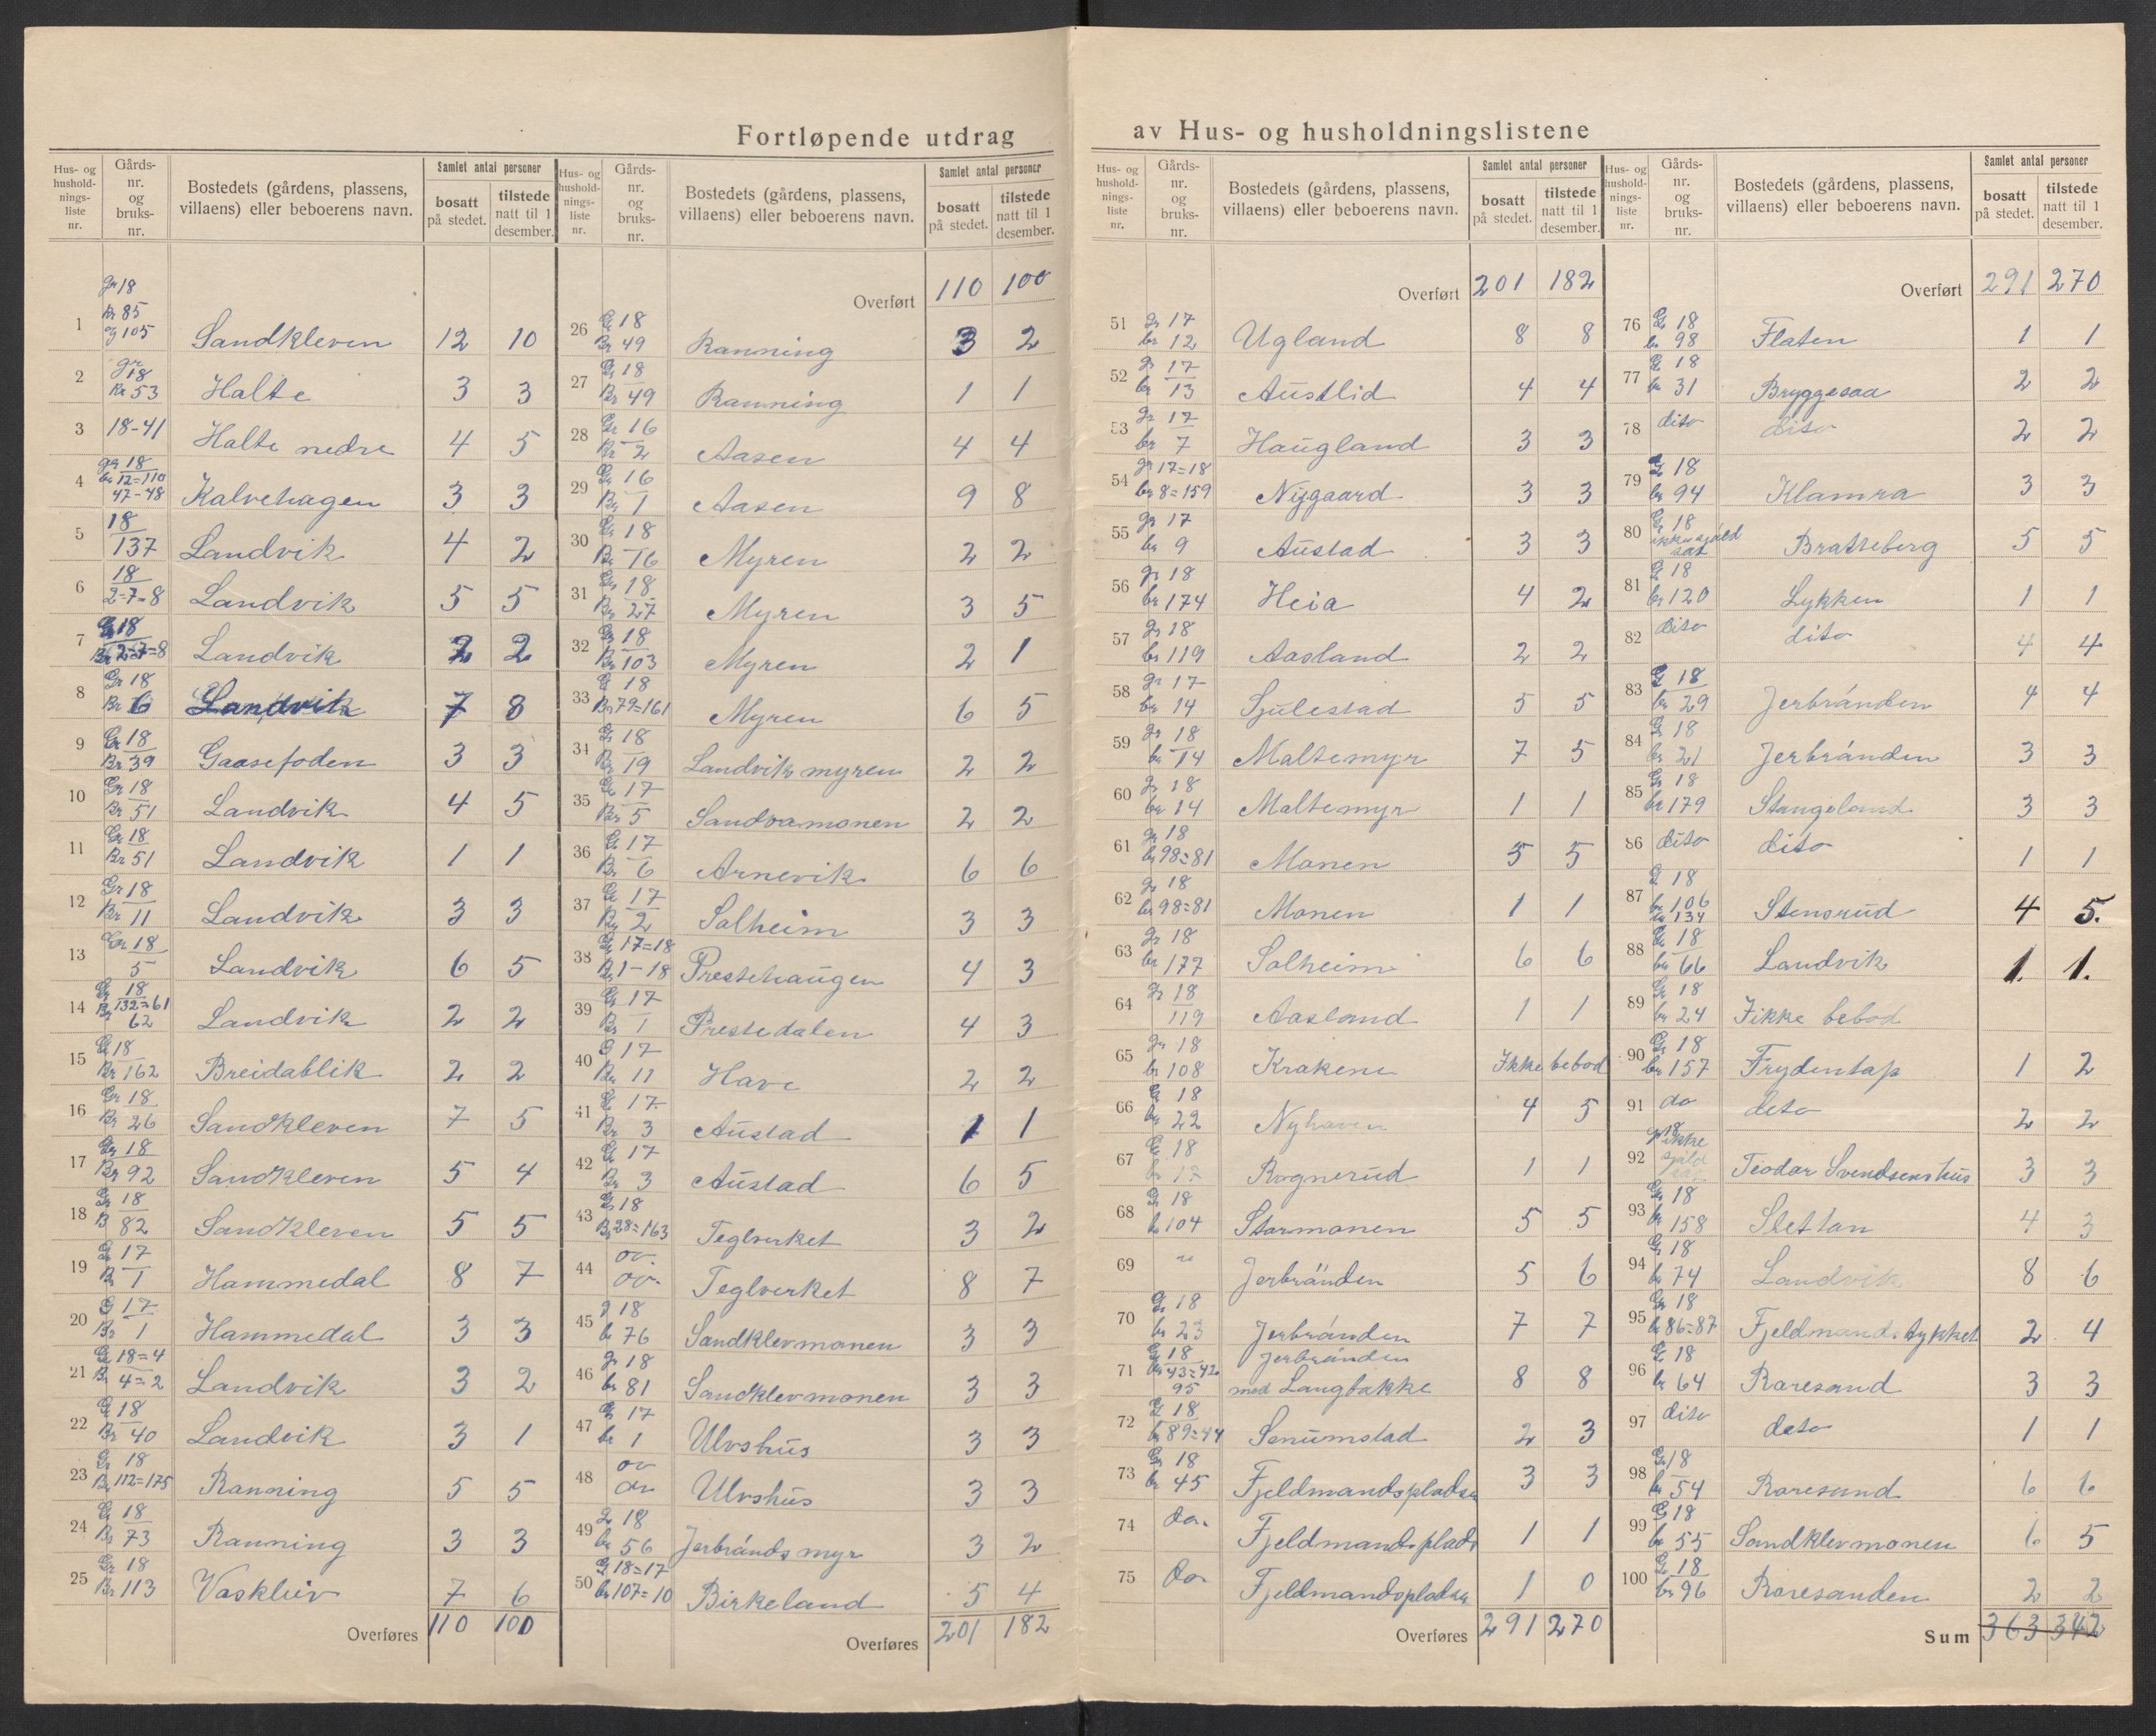 Fortløpende utdrag av Hus- og husholdningslistene
Hus- og husholdningsliste nr. | Gårdsnr. og bruksnr. | Bostedets (gårdens, plassens, villaens) eller beboerens navn. | Samlet antal personer | bosatt på stedet. | tilstede natt til 1 desember.
1 gr 18 br 85 og 105 Sandkleven 12 10
2 gr 18 br 53 Halte 3 3
3 18-41 Halte nedre 4 5
4 gr 18 br 12=110 47-48 Kalvehagen 3 3
5 18 137 Landvik 4 2
6 18 2-7=8 Landvik 5 5
7 Gr 18 Br 2=7=8 Landvik 2 2
8 Gr 18 Br 6 Landvik 7 8
9 Gr 18 Br 39 Gaasefoden 3 3
10 Gr 18 Br 51 Landvik 4 5
11 Gr 18 Br 51 Landvik 1 1
12 Gr 18 Br 11 Landvik 3 3
13 Gr 18 5 Landvik 6 5
14 Gr 18 Br 132=61 62 Landvik 2 2
15 Gr 18 Br 162 Breidablik 2 2
16 Gr 18 Br 26 Sandkleven 7 5
17 Gr 18 Br 92 Sandkleven 5 4
18 Gr 18 B 82 Sandkleven 5 5
19 G 17 B 1 Hammedal 8 7
20 G 17 Br 1 Hammedal 3 3
21 Gr 18=4 Br 4=2 Landvik 3 2
22 G 18 Br 40 Landvik 3 1
23 Gr 18 Br 112=175 Ranning 5 5
24 Gr 18 Br 73 Ranning 3 3
25 Gr 18 Br 113 Vaskleiv 7 6
Overføres 110 100
Overført 110 100
26 G 18 Br 49 Ranning 3 2
27 Gr 18 Br 49 Ranning 1 1
28 Gr 16 Br 2 Aasen 4 4
29 Gr 16 Br 1 Aasen 9 8
30 Gr 18 Br 16 Myren 2 2
31 Gr 18 Br 27 Myren 3 5
32 Gr 18 Br 103 Myren 2 1
33 G 18 Br 79=161 Myren 6 5
34 Gr 18 Br 19 Landvikmyren 2 2
35 Gr 17 Br 5 Sandvamonen 2 2
36 G 17 Br 6 Arnevik 6 6
37 G 17 Br 2 Solheim 3 3
38 G 17=18 Br 1-18 Prestehaugen 4 3
39 G 17 Br 1 Prestedalen 4 3
40 G 17 Br 11 Have 2 2
41 G 17 Br 3 Austad 1 1
42 G 17 Br 3 Austad 6 5
43 Gr 18 Br 28=163 Teglverket 3 2
44 Teglverket 8 7
45 g 18 br 76 Sandklevmonen 3 3
46 gr 18 br 81 Sandklevmonen 3 3
47 G 17 br 1 Ulvshus 3 3
48 Ulvshus 3 3
49 gr 18 br 56 Jerbrándsmyr 3 2
50 G 18=17 br 107=10 Birkeland 5 4
Overføres 201 182
Overført 201 182
51 gr 17 br 12 Ugland 8 8
52 gr 17 br 13 Austlid 4 4
53 gr 17 br 7 Haugland 3 3
54 gr 17=18 br 8=159 Nygaard 3 3
55 gr 17 br 9 Austad 3 3
56 gr 18 br 174 Heia 4 2
57 gr 18 br 119 Aasland 2 2
58 gr 17 br 14 Sjulestad 5 5
59 gr 18 br 14 Maltemyr 7 5
60 gr 18 br 14 Maltemyr 1 1
61 gr 18 br 98=81 Monen 5 5
62 gr 18 br 98=81 Monen 1 1
63 gr 18 br 177 Solheim 6 6
64 gr 18 119 Aasland 1 1
65 gr 18 br 108 Krakene Ikke bebod
66 G 18 br 22 Nyhaven 4 5
67 G 18 Rognerud 1 1
68 Gr 18 br 104 Stormonen 5 5
69 Jerbränden 5 6
70 Gr 18 br 23 Jerbränden 7 7
71 Gr 18 br 43=42 95 Jerbränden med Langbakke 8 8
72 G 18 br 89=44 Senumstad 2 3
73 Gr 18 br 45 Fjeldmandspladsen 3 3
74 do. Fjeldmandsplads 1 1
75 do. Fjeldmandspladsen 1 0
Overføres 291 270
Overført 291 270
76 Gr 18 br 98 Flaten 1 1
77 G 18 br 31 Bryggesaa 2 2
78 dito dito 2 2
79 G 18 br 94 Klamra 3 3
80 Gr 18 Bratteberg 5 5
81 G 18 br 120 Lykken 1 1
82 dito dito 4 4
83 G 18 br 29 Jerbränden 4 4
84 G 18 br 21 Jerbránden 3 3
85 Gr 18 br 179 Stangeland 3 3
86 dito dito 1 1
87 G 18 br 106 br 134 Stensrud 4 5.
88 Gr 18 br 66 Landvik 1. 1.
89 Gr 18 br 24 Ikke bebod
90 Gr 18 br 157 Frydentap 1 2
91 do deto 2 2
92 gr 18 ikke Teodor Svendsens hus 3 3
93 Gr 18 br 158 Slettan 4 3
94 Gr 18 br 74 Landvik 8 6
95 Gr 18 br 86=87 Fjeldmandstykket 2 4
96 G 18 br 64 Roresand 3 3
97 dito deto 1 1
98 Gr 18 br 54 Roresand 6 6
99 G 18 br 55 Sandklevmonen 6 5
100 G 18 br 96 Roresanden 2 2
Sum 363 342